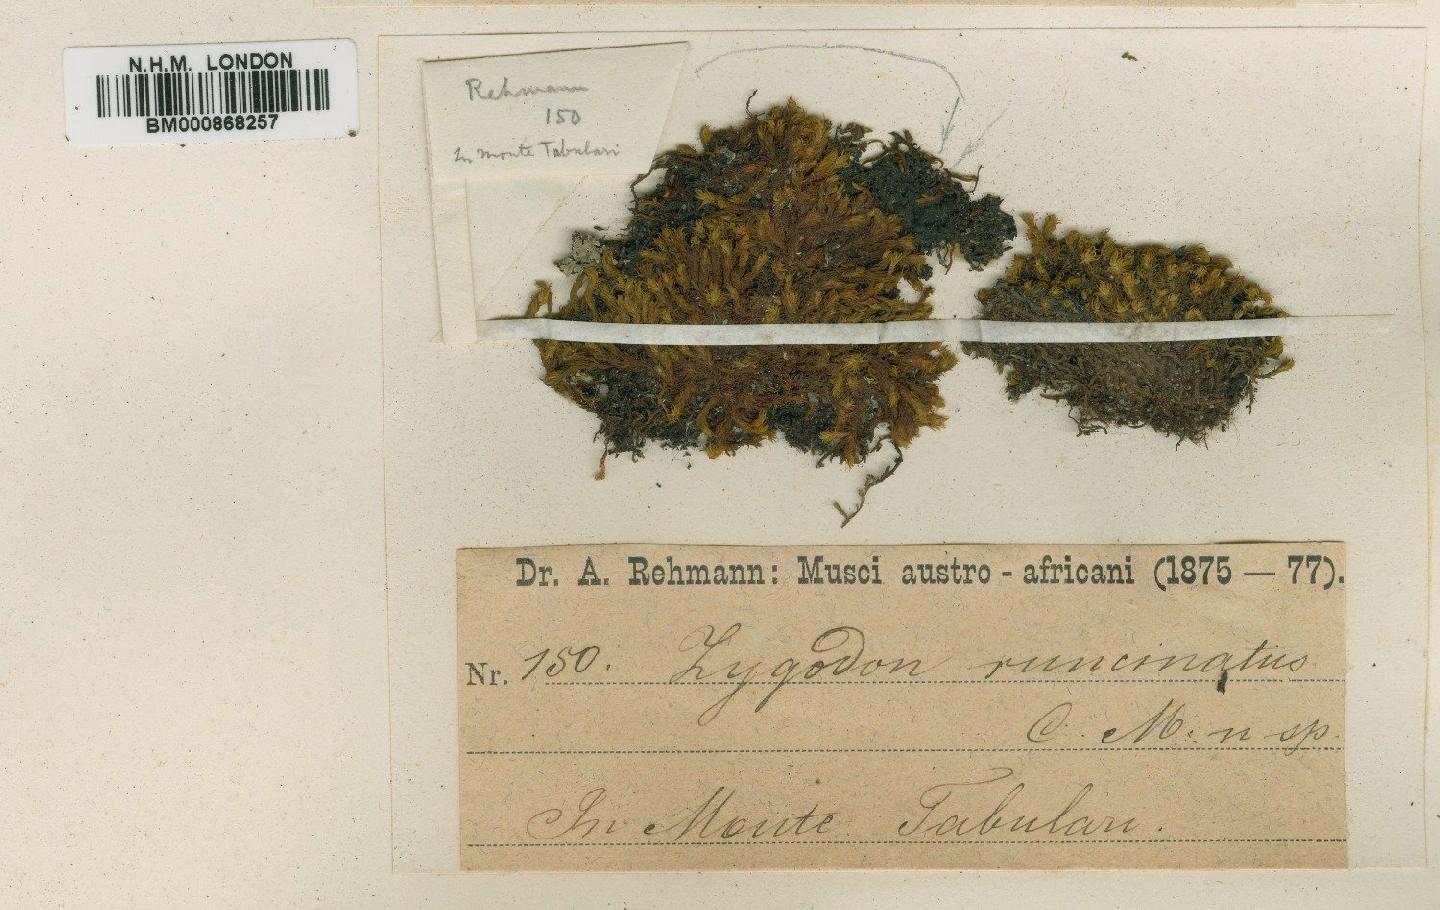 N.H.M. LONDON
BM000868257
Rehmann
150
In monte Tabulari
Dr. A. Rehmann: Musci austro-africani (1875 — 77).
Nr. 150. Zygodon runcinatus
C. M. n sp.
In Monte Tabulari.